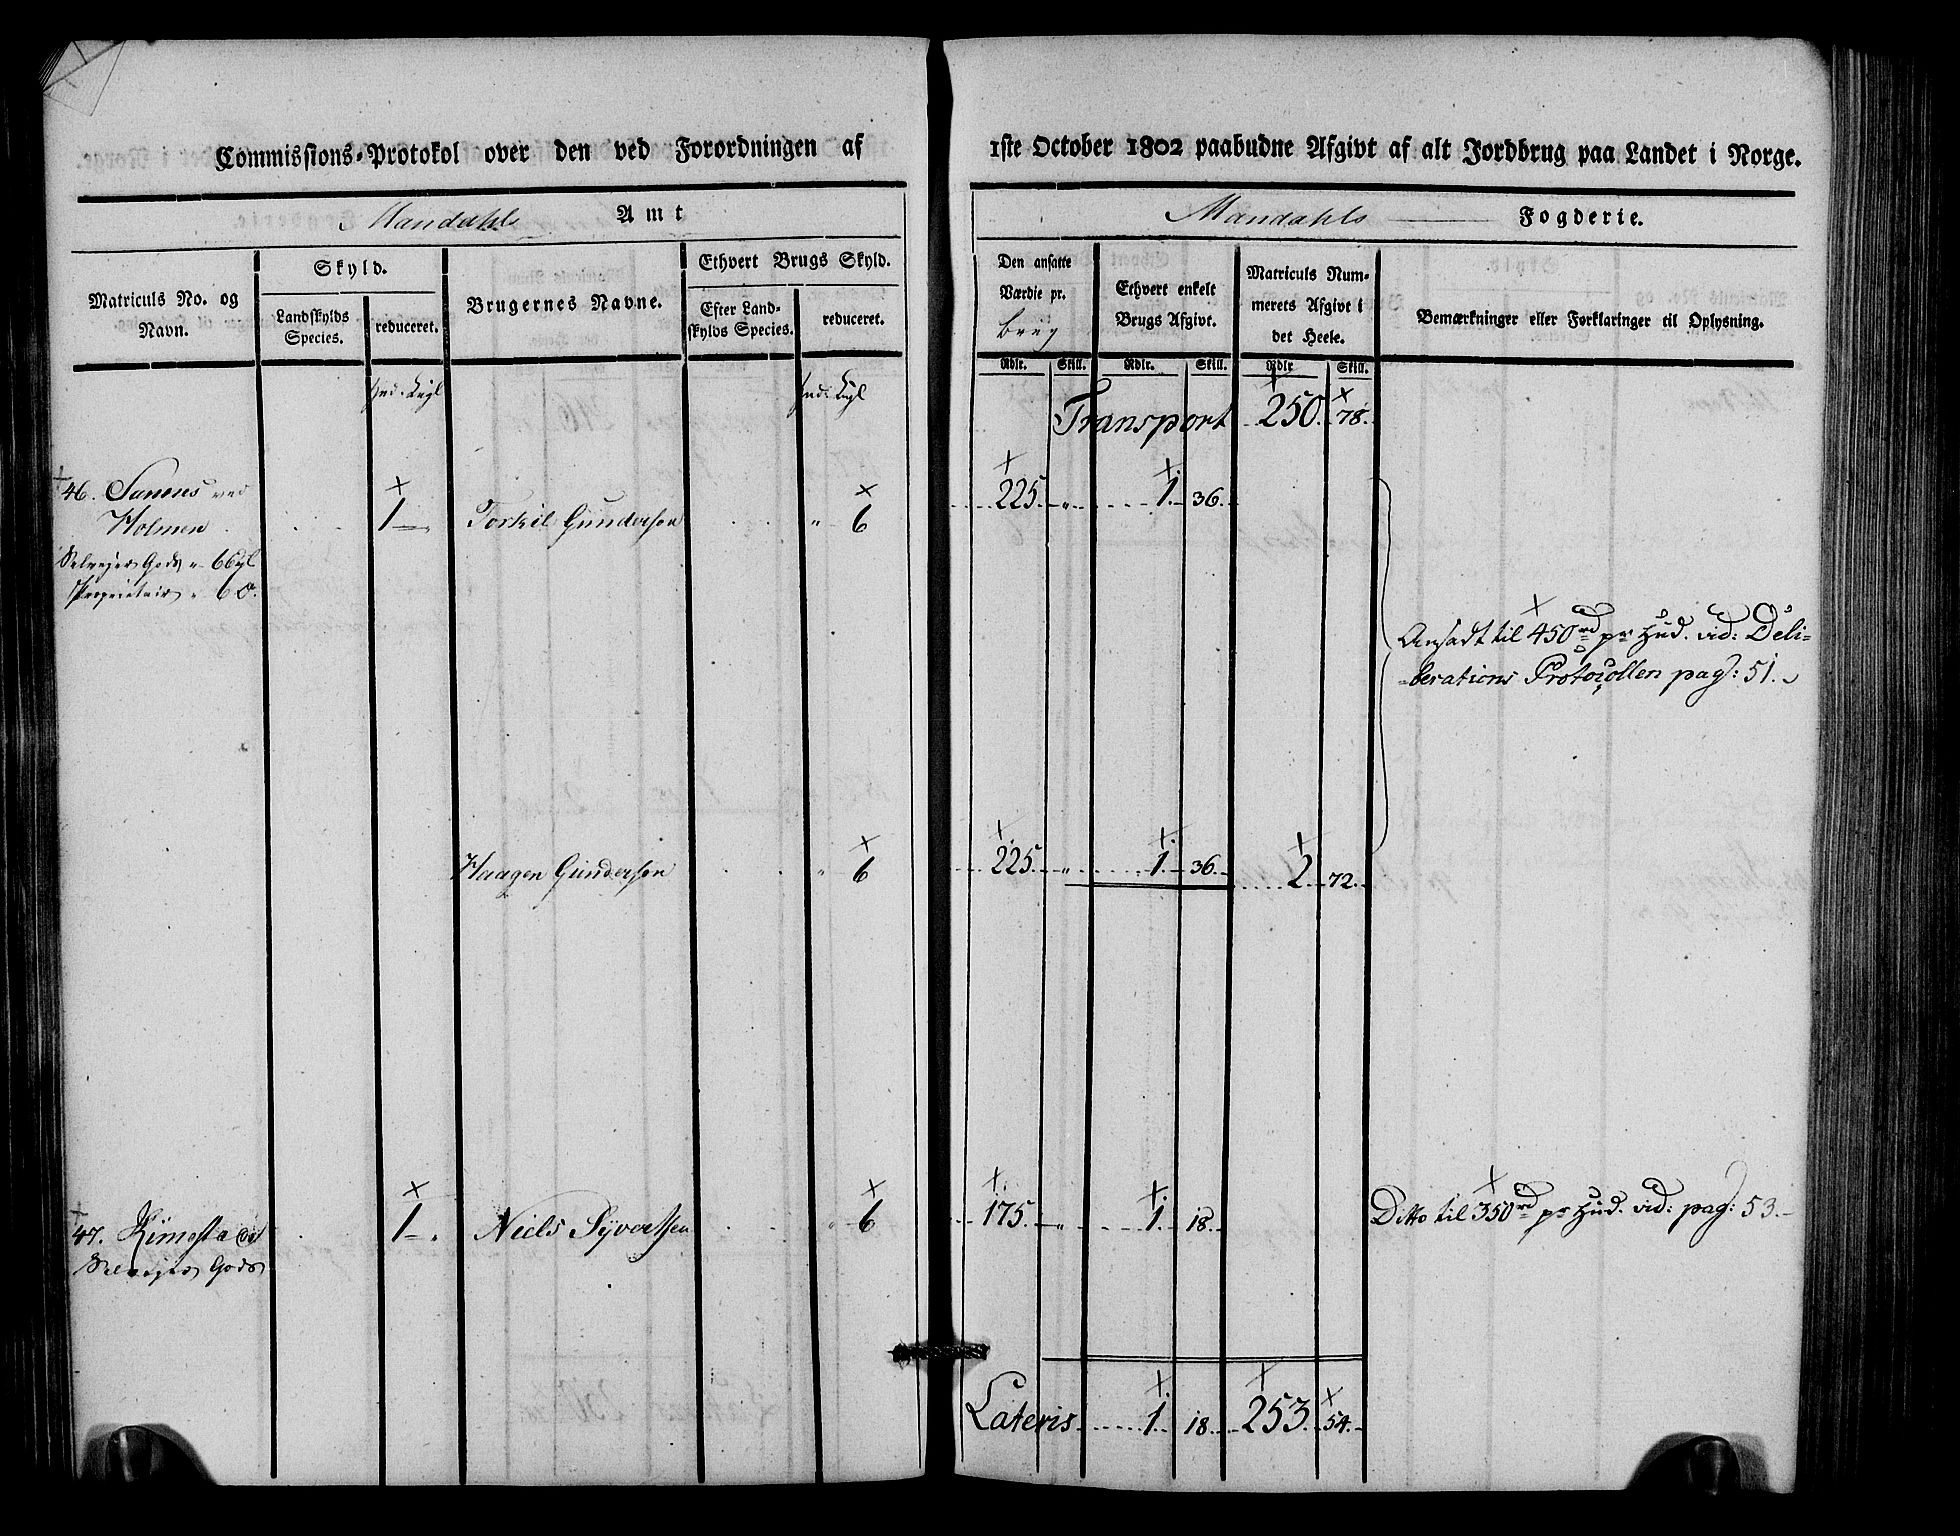 Commissions-Protokol over den ved Forordningen af 1ste October 1802 paabudne Afgivt af alt Jordbrug paa Landet i Norge.
Mandahls Amt
Mandahls Fogderie.
Matriculs No. og Navn.
Skyld.
Landskylds Species.
reduceret.
Brugernes Navne.
Ethvert Brugs Skyld.
Efter Landskylds Species.
reduceret.
Den ansatte Værdie pr. brug
Ethvert enkelt Brugs Afgivt.
Matriculs Nummerets Afgivt i det Heele.
Bemærkninger eller Forklaringer til Oplysning.
Rdlr. Skill. Rdlr. Skill. Rdlr Skill.
Transport 250. 78.
46. Sanens ved 1 Torkil Gundersen " 6 225. " 1. 36.
Holmen
Selvejer Gods " 6
Proprietair " 6
Ansadt til 450rd pr Hud. vid: Deli-
berations Protocollen pag: 51.
Haagen Gundersen " 6 225. " 1. 36. 2 72.
47. 1 Niels Syvertsen " 6 175. " 1. 18. Ditto til 350rd pr Hud. vid: pag: 53.
Selvejer Gods
Lateris 1. 18. 253. 54.